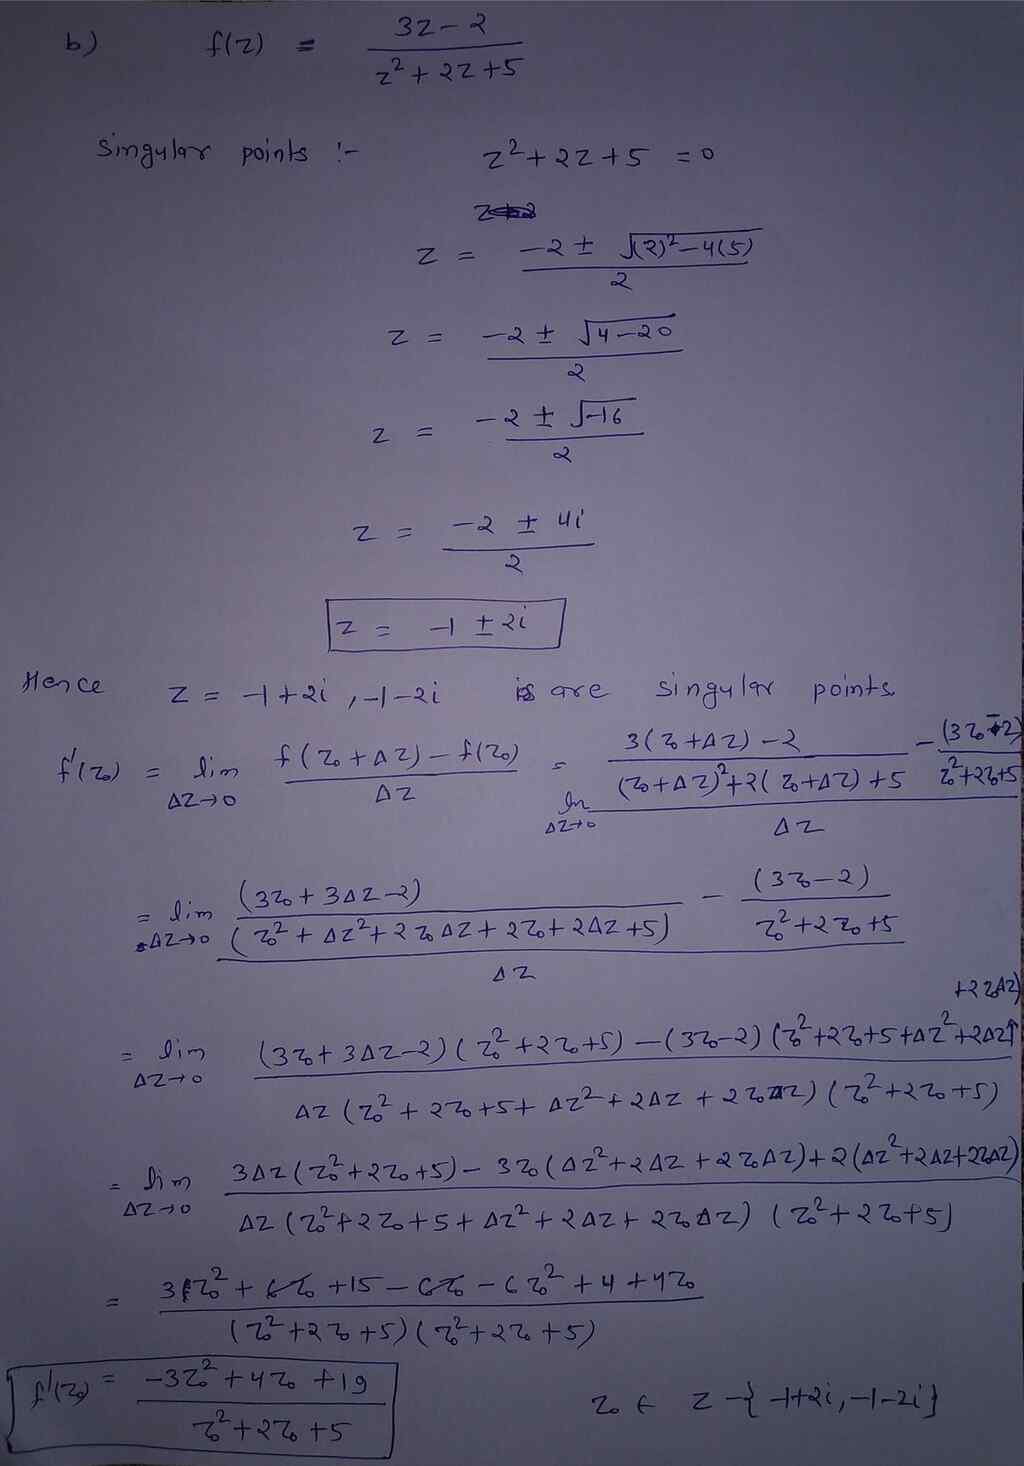 b) f(z) = (3z-2)/(z²+2z+5)
Singular points :- z²+2z+5 = 0
z = (-2 ± √((2)²-4(5)))/2
z = (-2 ± √(4-20))/2
z = (-2 ± √-16)/2
z = (-2 ± 4i)/2
z = -1 ± 2i
Hence z = -1+2i, -1-2i are singular points
f'(z₀) = lim Δz→0 (f(z₀+Δz) - f(z₀))/Δz = lim Δz→0 ((3(z₀+Δz)-2)/((z₀+Δz)²+2(z₀+Δz)+5) - (3z₀-2)/(z₀²+2z₀+5))/Δz
= lim Δz→0 ((3z₀+3Δz-2)/(z₀²+Δz²+2z₀Δz+2z₀+2Δz+5) - (3z₀-2)/(z₀²+2z₀+5))/Δz
= lim Δz→0 ((3z₀+3Δz-2)(z₀²+2z₀+5) - (3z₀-2)(z₀²+2z₀+5+Δz²+2Δz+2z₀Δz))/(Δz(z₀²+2z₀+5+Δz²+2Δz+2z₀Δz)(z₀²+2z₀+5))
= lim Δz→0 (3Δz(z₀²+2z₀+5) - 3z₀(Δz²+2Δz+2z₀Δz) + 2(Δz²+2Δz+2z₀Δz))/(Δz(z₀²+2z₀+5+Δz²+2Δz+2z₀Δz)(z₀²+2z₀+5))
= (3z₀²+6z₀+15-6z₀-6z₀²+4+4z₀)/((z₀²+2z₀+5)(z₀²+2z₀+5))
f'(z₀) = (-3z₀²+4z₀+19)/(z₀²+2z₀+5) z₀ ∈ z-{-1+2i, -1-2i}